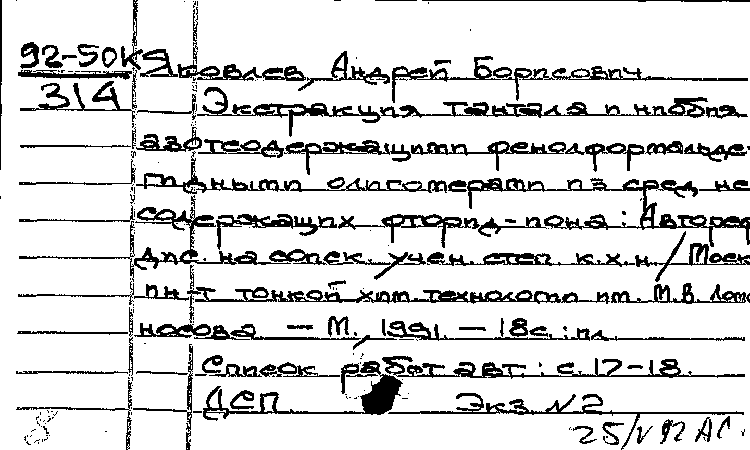 92-50к Яковлев, Андрей Борисович.
314 Экстракция тантала и ниобия
азотсодержащими фенолформальде-
гидными олигомерами из сред, не
содержащих фторид-иона : Автореф
дис. на соиск. учен. степ. к.х.н. / Моск
ин-т тонкой хим. технологии им. М.В. Ломо
носова — М., 1991. — 18с. : ил.
Список работ авт. : с. 17-18.
ДСП. Экз. №2
8 25/V 92 АС.